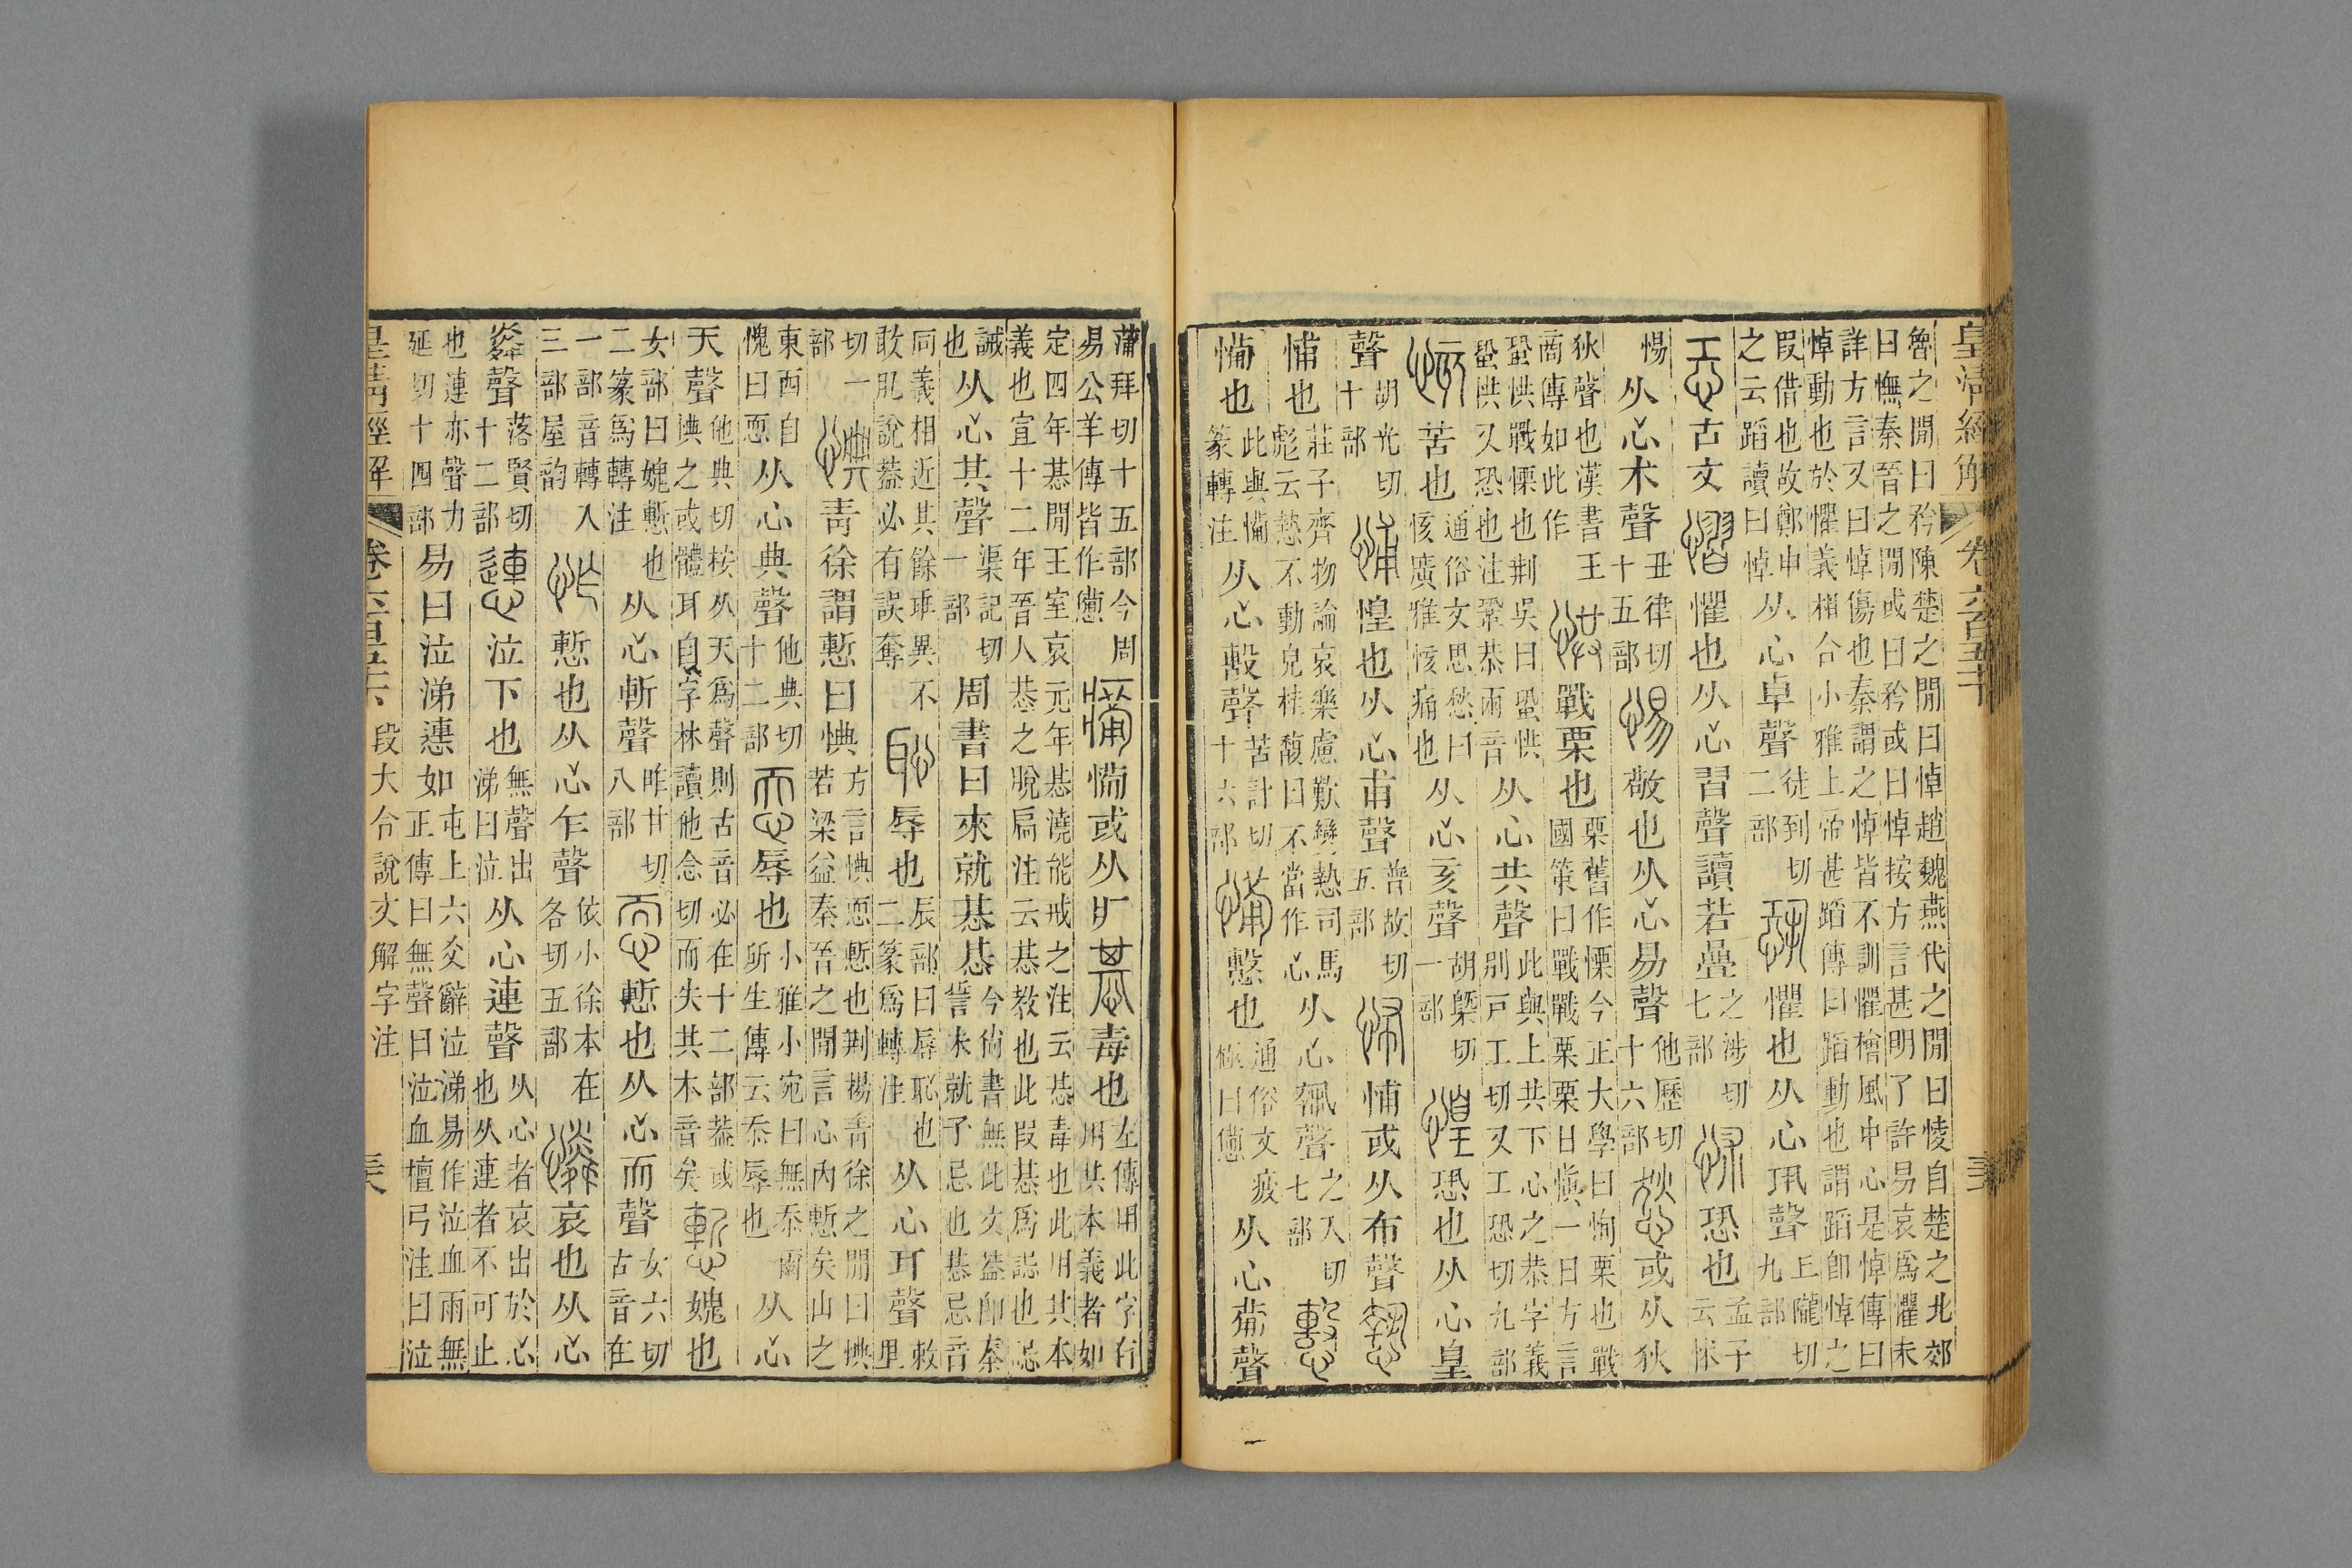 皇清經解 卷六百五十
魯之閒曰矜陳楚之閒曰悼趙魏燕代之閒曰㥄自楚之北郊
曰憮秦晉之閒或曰矜或曰悼按方言甚明了許易哀爲懼未
詳方言又曰悼傷也秦謂之悼皆不訓懼檜風中心是悼傳曰
悼動也於懼義相合小雅上帝甚蹈傳曰蹈動也謂蹈卽悼之
叚借也故鄭申
之云蹈讀曰悼
从心卓聲
徒到切
二部
懼也从心巩聲
丘隴切
九部
古文
懼也从心習聲讀若疊
之涉切
七部
恐也
孟子
云怵
惕
从心术聲
丑律切
十五部
敬也从心易聲
他歷切
十六部
或从狄
狄聲也漢書王
商傳如此作
戰栗也
栗舊作慄今正大學曰恂栗也戰
國策曰戰戰栗栗日愼一日方言
蛩㤨戰慄也荆吳曰蛩㤨
蛩㤨又恐也注鞏恭兩音
从心共聲
此與上共下心之恭字義
別戸工切又工恐切九部
苦也
通俗文患愁曰
㤥廣雅㤥痛也
从心亥聲
胡槩切
一部
恐也从心皇
聲
胡光切
十部
惶也从心甫聲
普故切
五部
怖或从布聲
悑也
莊子齊物論哀樂慮歎變慹司馬
彪云慹不動皃桂馥曰不當作心
从心執聲
之入切
七部
㦅也
此與㦅
篆轉注
从心毄聲
苦計切
十六部
㦅也
通俗文疲
極曰憊
从心𤰈聲
蒲拜切十五部今周
易公羊傳皆作憊
㦅或从疒
毒也
左傳用此字行
用其本義者如
定四年惎閒王室哀元年惎澆能戒之注云惎毒也此用其本
義也宣十二年晉人惎之脫扃注云惎教也此叚惎爲誋也誋
誡
也
从心其聲
渠記切
一部
周書曰來就惎惎
今尙書無此文葢卽秦
誓未就予忌也惎忌音
同義相近其餘乖異不
敢肊說葢必有誤奪
辱也
辰部曰辱恥也
二篆爲轉注
从心耳聲
敕里
切一
部
靑徐謂慙曰㥏
方言㥏恧慙也荆揚靑徐之閒曰㥏
若梁益秦晉之閒言心內慙矣山之
東西自
愧曰恧
从心典聲
他典切
十二部
辱也
小雅小宛曰無忝爾
所生傳云忝辱也
从心
天聲
他典切按从天爲聲則古音必在十二部葢或
㥏之或體耳自字林讀他念切而失其本音矣
媿也
女部曰媿慙也
二篆爲轉注
从心斬聲
昨甘切
八部
慙也从心而聲
女六切
古音在
一部音轉入
三部屋韵
慙也从心乍聲
依小徐本在
各切五部
哀也从心
粦聲
落賢切
十二部
泣下也
無聲出
涕曰泣
从心連聲
从心者哀出於心
也从連者不可止
也連亦聲力
延切十四部
易曰泣涕漣如
屯上六爻辭泣涕易作泣血雨無
正傳曰無聲曰泣血檀弓注曰泣
段大令說文解字注